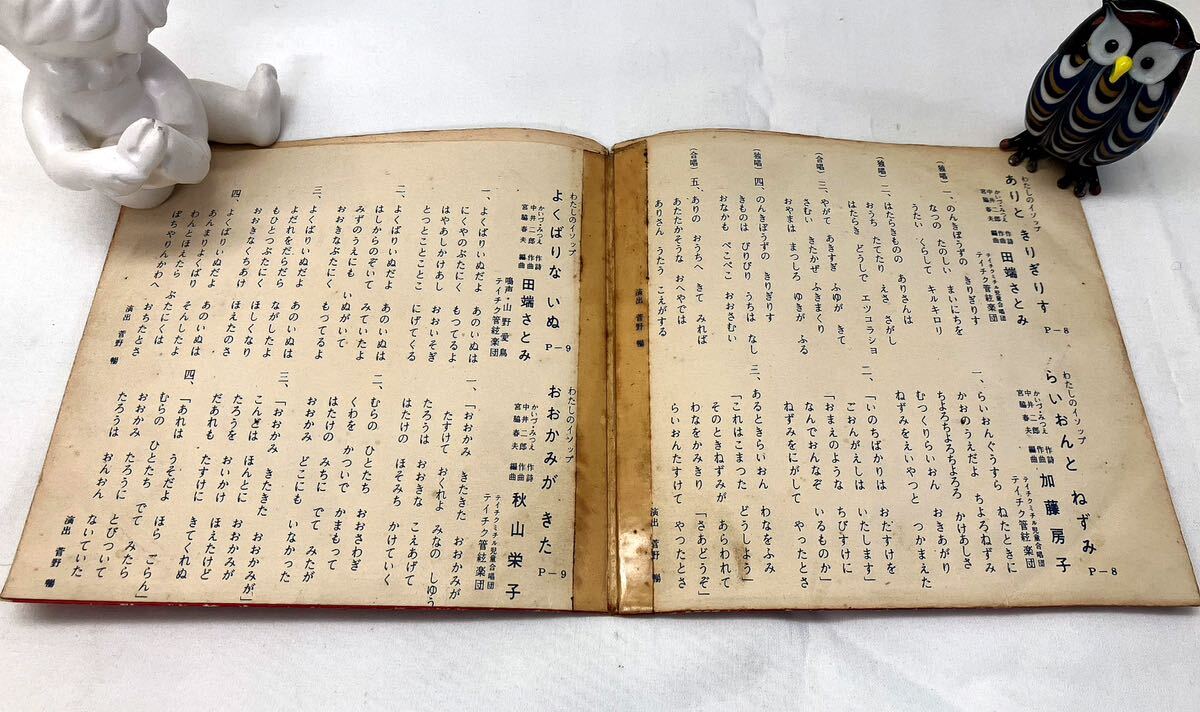 わたしのイソップ
ありと きりぎりす P-8
かいづ・みつえ 作詩
中井二郎 作曲
宮脇春夫 編曲
田端さとみ
テイチクミチル児童合唱団
テイチク管絃楽団
(独唱) 一、のんきぼうずの きりぎりす
なつの たのしい まいにちを
うたい くらして キルキロリ
(独唱) 二、はたらきものの ありさんは
おうち たてたり えさ さがし
はたらき どうしで エッコラショ
(合唱) 三、やがて あきすぎ ふゆが きて
さむい きたかぜ ふきまくり
おやまは まつしろ ゆきが ふる
(独唱) 四、のんきぼうずの きりぎりす
きものは ぴりぴり うちは なし
おなかも ぺこぺこ おおさむい
(合唱) 五、ありの おうちへ きて みれば
あたたかそうな おへやでは
ありさん うたう こえがする
演出 菅野 暢
わたしのイソップ
らいおんと ねずみ P-8
かいづ・みつえ 作詩
中井二郎 作曲
宮脇春夫 編曲
加藤房子
テイチクミチル児童合唱団
テイチク管絃楽団
一、らいおんぐうすら ねたときに
かおのうえだよ ちよろねずみ
ちよろちよろちよろろ かけあしさ
むつくりらいおん おきあがり
ねずみをえいやっと つかまえた
二、「いのちばかりは おだすけを
ごおんがえしは いたします」
「おまえのような ちびすけに
なんでおんなぞ いるものか」
ねずみをにがして やったとさ
三、あるときらいおん わなをふみ
「これはこまった どうしよう」
そのときねずみが あらわれて
わなをかみきり 「さあどうぞ」
らいおんたすけて やったとさ
演出 菅野 暢
わたしのイソップ
よくばりな いぬ P-9
かいづ・みつえ 作詩
中井二郎 作曲
宮脇春夫 編曲
田端さとみ
鳴声・山野愛鳥
テイチク管絃楽団
一、よくばりいぬだよ あのいぬは
にくやのぶたにく もつてるよ
はやあしかけあし おおいそぎ
とつとことことこ にげてくる
二、よくばりいぬだよ あのいぬは
はしからのぞいて みていたよ
みずのうえにも いぬがいて
おおきなぶたにく もつてるよ
三、よくばりいぬだよ あのいぬは
よだれをだらだら ながしたよ
もひとつぶたにく ほしくなり
おおきなくちあけ ほえたのさ
四、よくばりいぬだよ あのいぬは
あんまりよくばり そんしたよ
わんとほえたら ぶたにくは
ぽちやりんかわへ おちたとさ
演出 菅野 暢
わたしのイソップ
おおかみが きた P-9
かいづ・みつえ 作詩
中井二郎 作曲
宮脇春夫 編曲
秋山栄子
テイチクミチル児童合唱団
テイチク管絃楽団
一、「おおかみ きたきた おおかみが
たすけて おくれよ みなの しゆう
たろうは おおきな こえあげて
はたけの ほそみち かけていく
二、むらの ひとたち おおさわぎ
くわを かついで かまもって
はたけの みちに でて みたが
おおかみ どこにも いなかった
三、「おおかみ きたきた おおかみが」
こんどは ほんとに おおかみが
たろうを おいかけ ほえたけど
だあれも たすけに きてくれぬ
四、「あれは うそだよ ほら ごらん」
むらの ひとたち でて みたら
おおかみ たろうに とびついて
たろうは おんおん ないていた
演出 菅野 暢